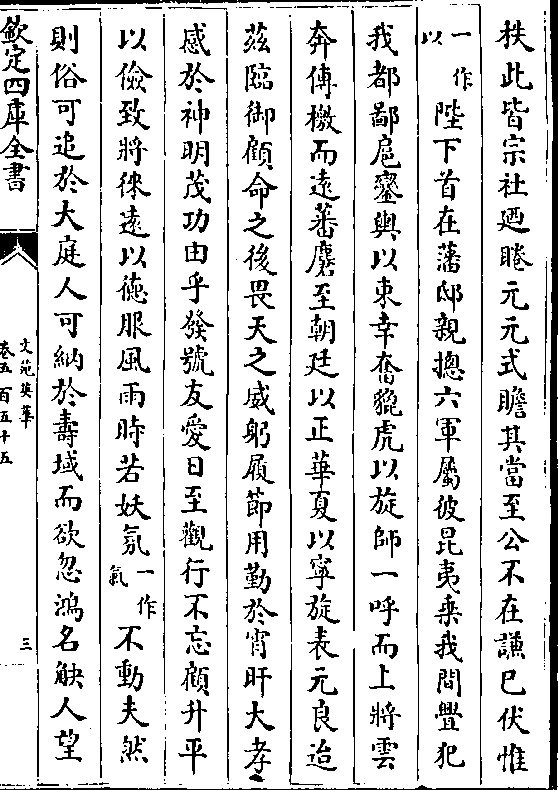 秩此皆宗社廼睠元元式瞻其當至公不在謙巳伏惟
一作以陛下首在藩邸親摠六軍屬彼昆夷乗我間舋犯
我都鄙扈鑾輿以東幸奮貔虎以旋師一呼而上將雲
奔傳檄而遠蕃麕至朝廷以正華夏以寧旋表元良迨
茲臨御顧命之後畏天之威躬履節用勤於宵旰大孝
感於神明茂功由乎發號友愛日至觀行不忘顧升平
以儉致將徠遠以德服風雨時若妖氛一作氣不動夫然
則俗可追於大庭人可納於壽域而欲忽鴻名觖人望
欽定四庫全書
文苑英華
卷五百五十五
三